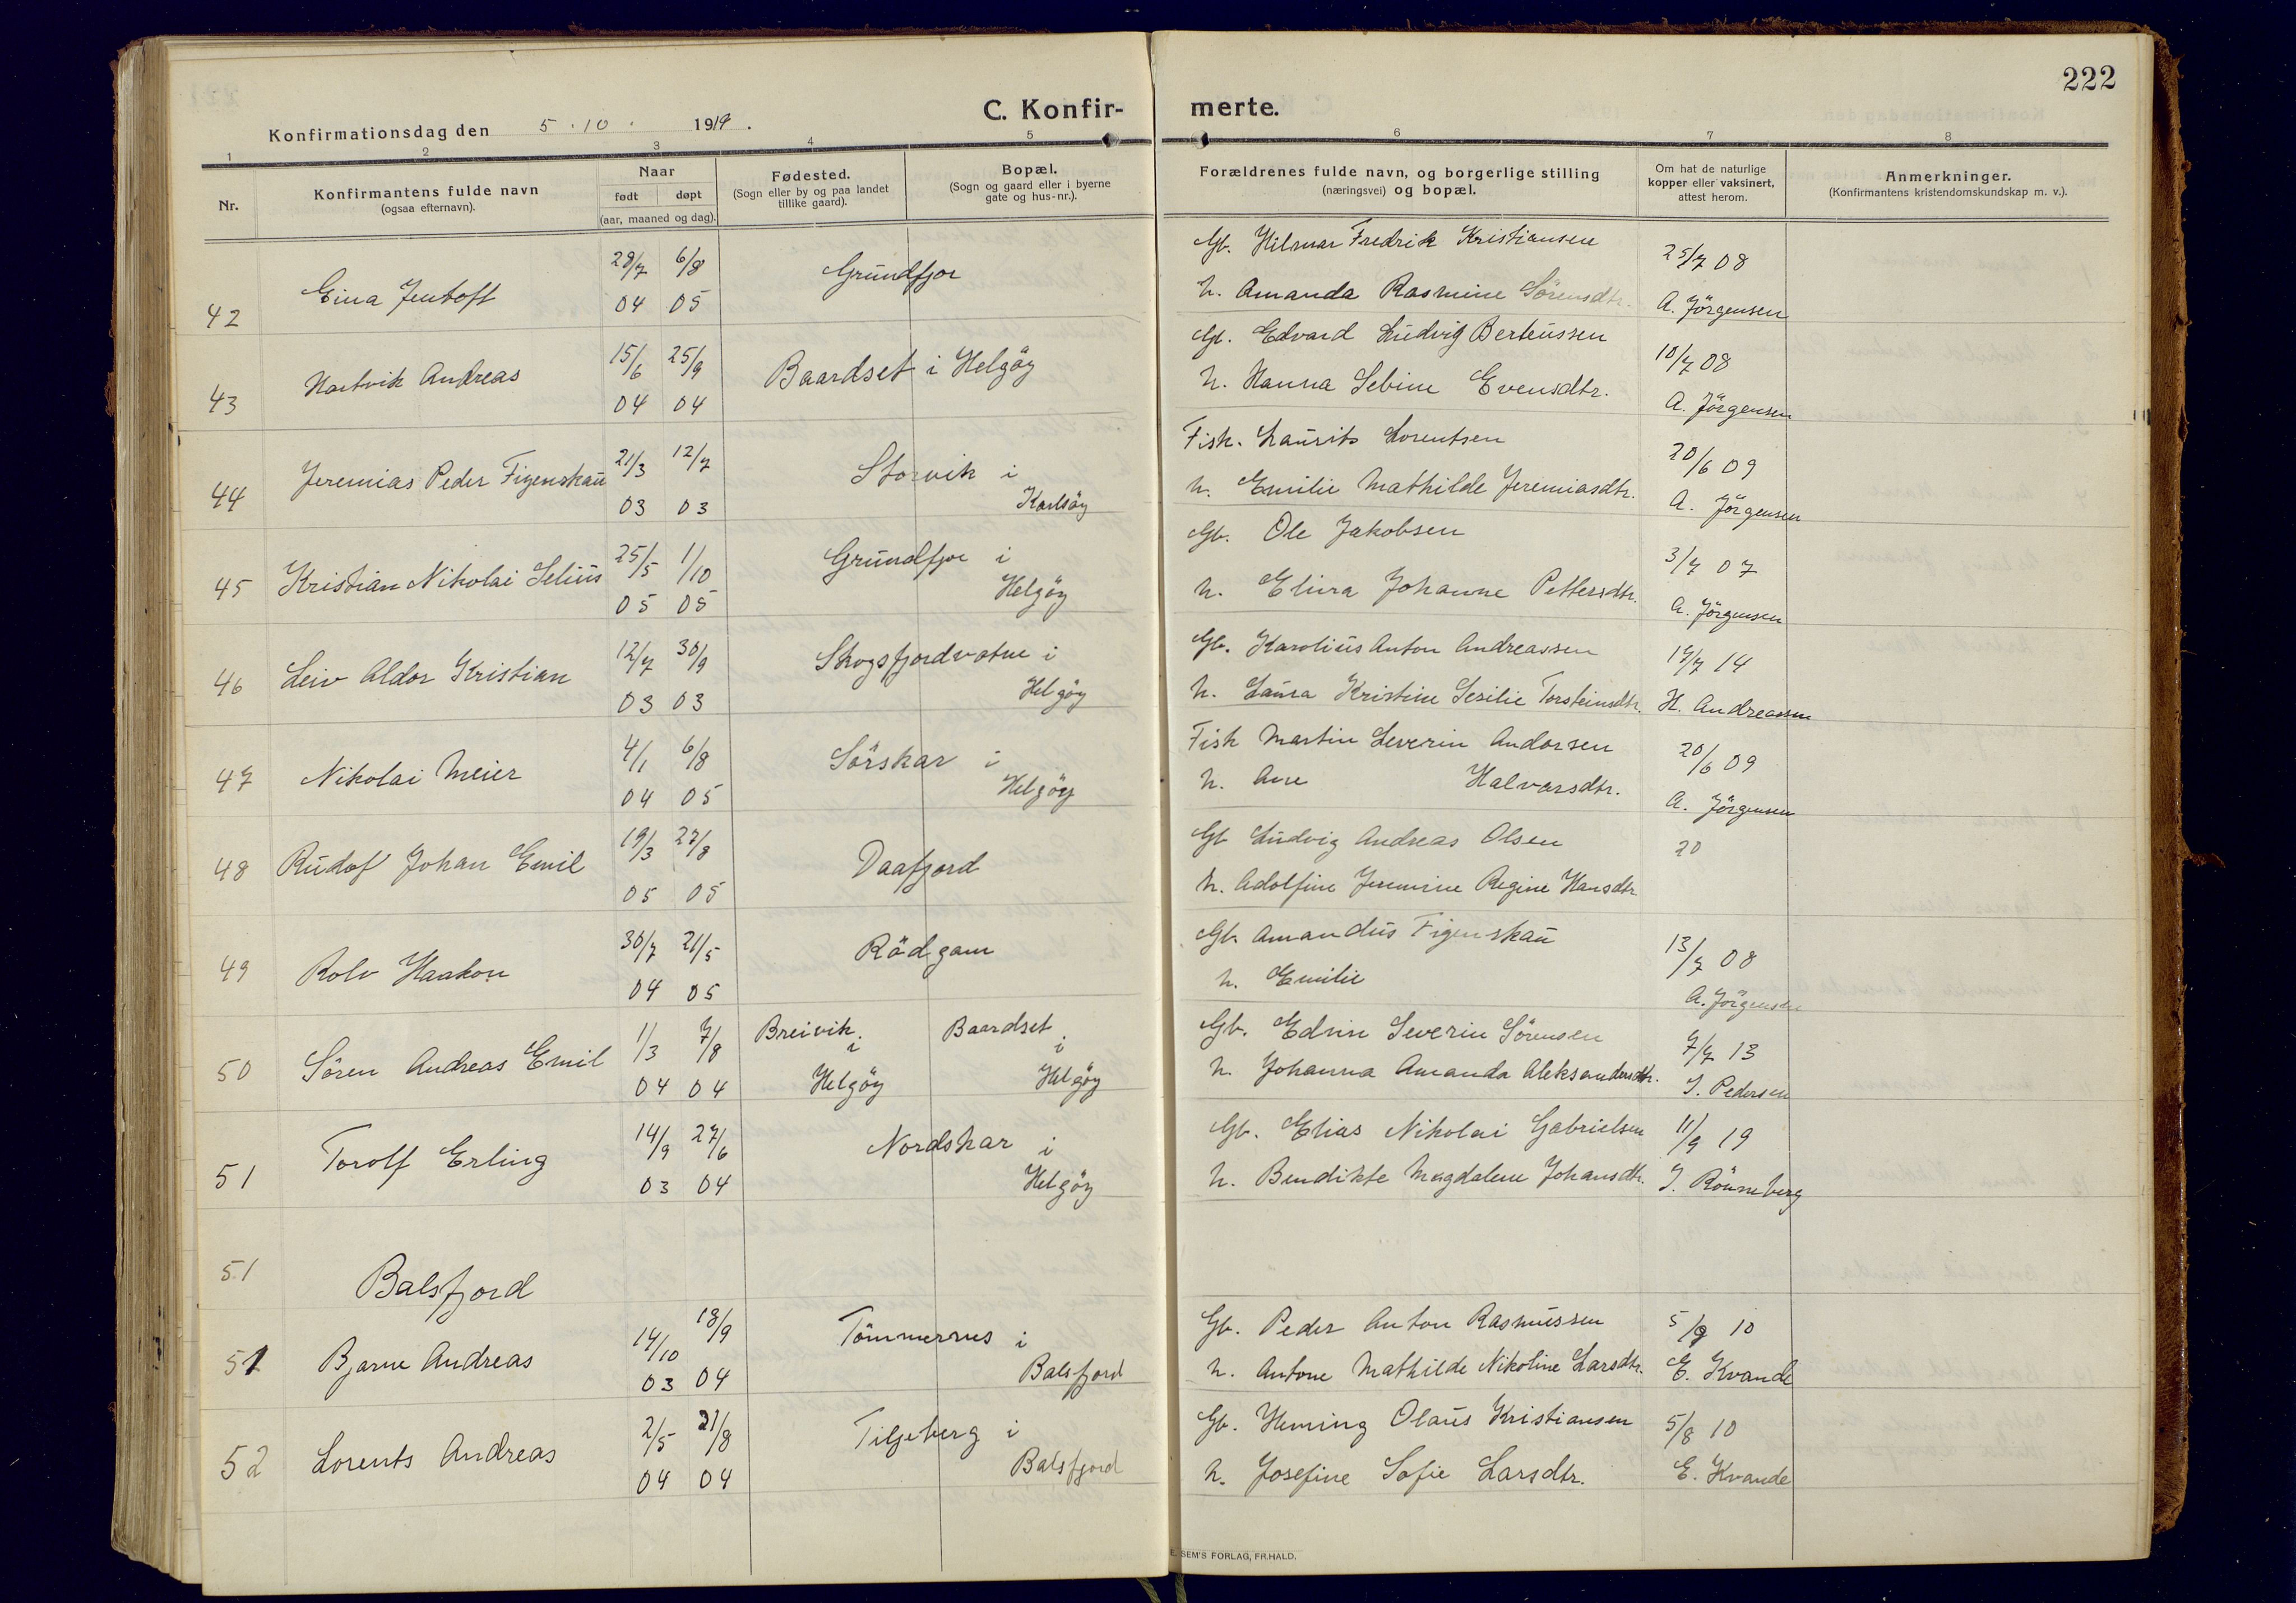 222
C. Konfir- merte.
Konfirmationsdag den 5 . 10 . 1919.
1 2 3 4 5 6 7 8
Nr.
Konfirmantens fulde navn
(ogsaa efternavn).
Naar
født døpt
(aar, maaned og dag).
Fødested.
(Sogn eller by og paa landet
tillike gaard).
Bopæl.
(Sogn og gaard eller i byerne
gate og hus-nr.).
Forældrenes fulde navn, og borgerlige stilling
(næringsvei) og bopæl.
Om hat de naturlige
kopper eller vaksinert,
attest herom.
Anmerkninger.
(Konfirmantens kristendomskundskap m. v.).
28/7 6/8 Grundfjor Gb. Hilmar Fredrik Kristiansen 25/7 08
42 Eina Jentoft 04 05 h. Amanda Rasmine Sörensdtr. A. Jörgensen
15/6 25/9 Baardset i Helgöy Gb. Edvard Ludvig Berteussen 10/7 08
43 Hartvik Andreas 04 04 h. Hanna Sebine Evensdtr. A. Jörgensen
21/3 12/7 Storvik i Fisk. Laurits Lorentsen 20/6 09
44 Jeremias Peder Figenskau 03 03 Karlsöy h. Emilie Mathilde Jeremiasdtr. A. Jörgensen
25/5 1/10 Grundfjor i Gb. Ole Jakobsen 3/7 07
45 Kristian Nikolai Selius 05 05 Helgöy h. Elina Johanne Pettersdtr. A. Jörgensen
12/7 30/9 Skogsfjordvatne i Gb. Karolius Anton Andreassen 14
46 Leiv Aldor Kristian 03 03 Helgöy h. Laura Kristine Sesilie Torsteinsdtr. H. Andreassen
4/1 6/8 Sörskar i Fisk Martin Severin Andorsen 20/6 09
47 Nikolai Meier 04 05 Helgöy h. Ane Halvarsdtr. A. Jörgensen
19/3 27/8 Daafjord Gb Ludvig Andreas Olsen 20
48 Rudof Johan Emil 05 05 h. Adolfine Jeremine Regine Hansdtr.
30/7 21/5 Rödgam Gb. Amandus Figenskau 13/7 08
49 Rolv Haakon 04 05 h. Emilie A. Jörgensen
1/3 7/8 Breivik i Baardset i Gb. Edvin Severin Sörensen 7/7 13
50 Sören Andreas Emil 04 04 Helgöy Helgöy h. Johanna Amanda Aleksandersdtr. J. Pedersen
14/9 27/6 Nordskar i Gb. Elias Nikolai Gabrielsen 11/9 19
51 Torolf Erling 03 04 Helgöy h. Bendikte Magdalene Johansdtr. J. Rönneberg
51
Balsfjord
14/10 18/9 Tömmernes i Gb. Peder Anton Rasmussen 5/9 10
51 Bjarne Andreas 03 04 Balsfjord h. Antone Mathilde Nikoline Larsdtr. E. Kvande
2/5 21/8 Tilgeberg i Gb. Heming Olaus Kristiansen 5/8 10
52 Lorents Andreas 04 04 Balsfjord h. Josefine Sofie Larsdtr. E. Kvande
SEM'S FORLAG, FR.HALD.